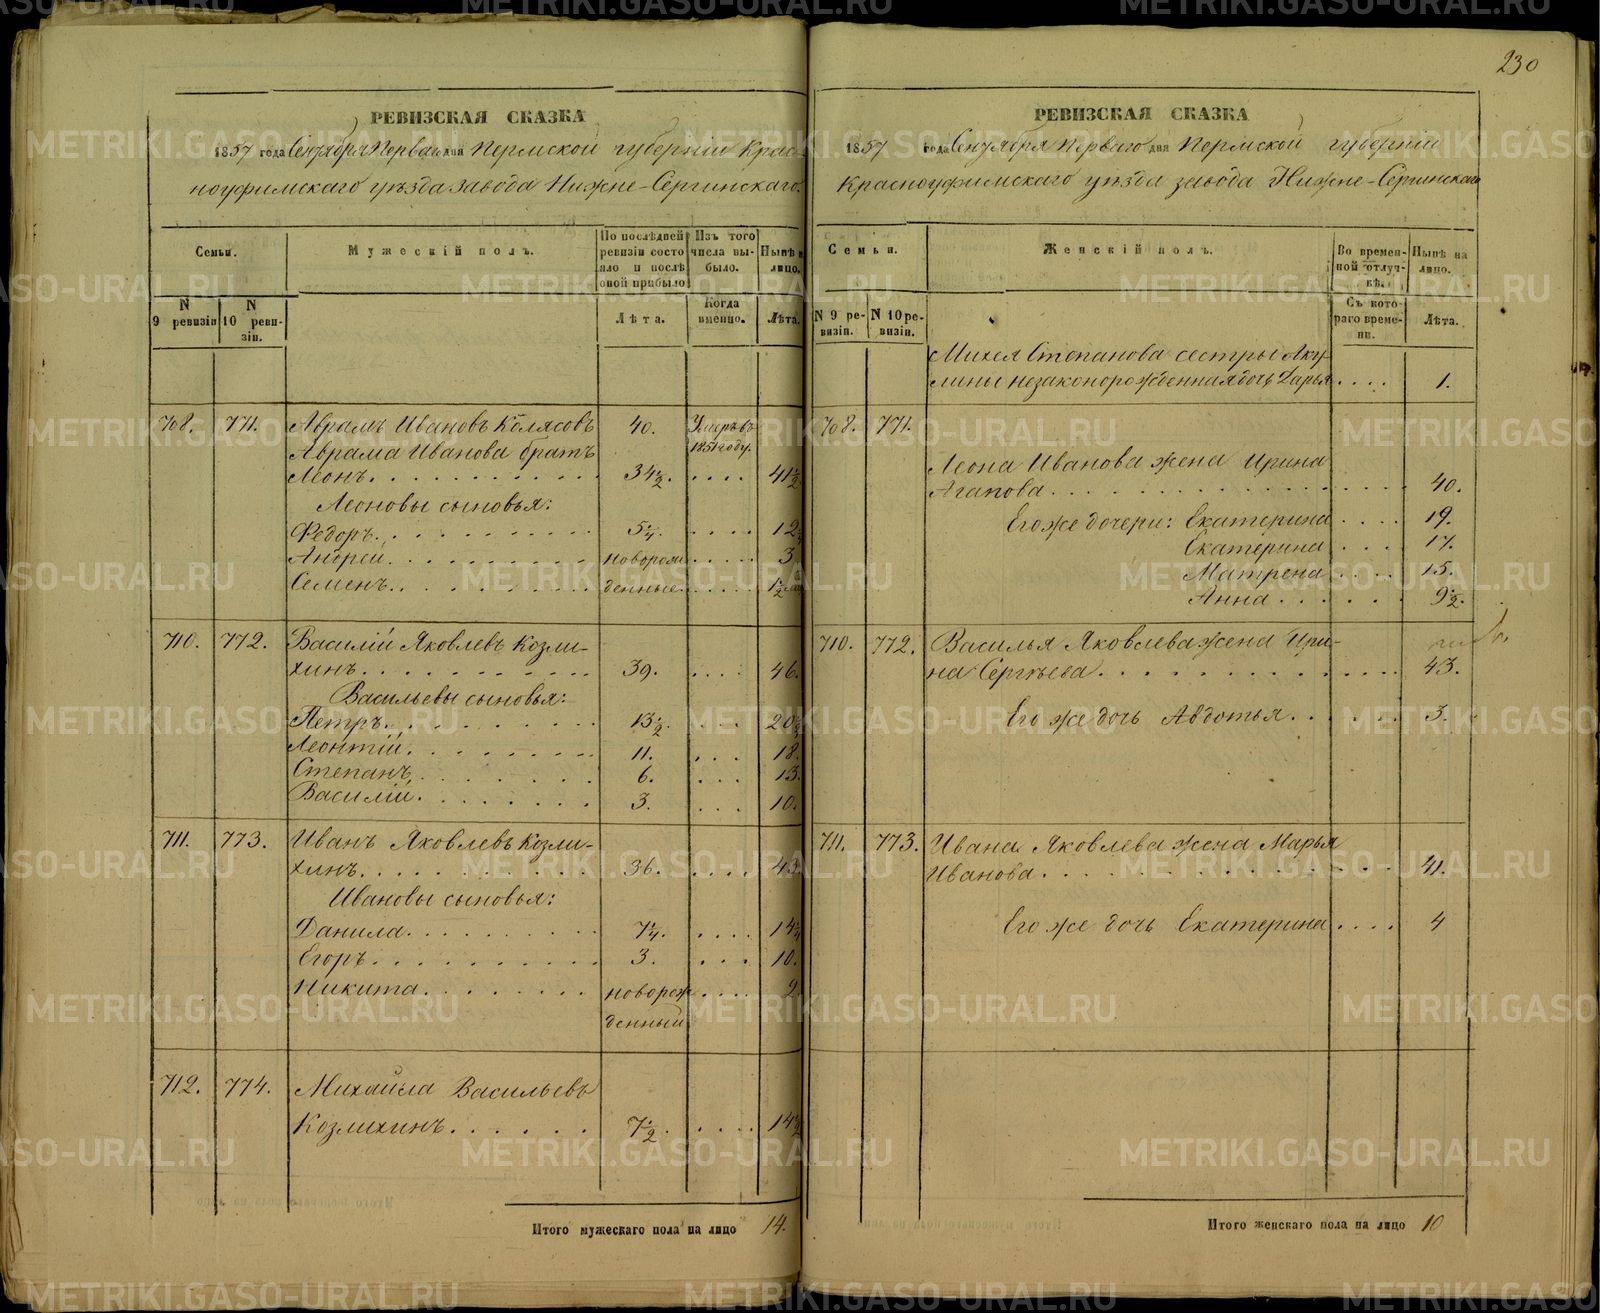 230
РЕВИЗСКАЯ СКАЗКА
1857 года Сентября Перваго дня Пермской губерніи Крас-
ноуфимскаго уѣзда завода Нижне-Сергинскаго.
Семьи.
Мужескій полъ.
По послѣдней ревизіи состояло и послѣ оной прибыло
Изъ того числа выбыло.
Нынѣ на лицо.
N 9 ревизіи
N 10 ревизіи.
Лѣта.
Когда именно.
Лѣта.
708. 771. Аврамъ Ивановъ Колясовъ 40. Умеръ въ 1851 году.
Аврама Иванова братъ
Леонъ 34½ 41½
Леоновы сыновья:
Федоръ 5¼ 12
Андрей новорож 3
Семенъ денные 1½
710. 772. Василій Яковлевъ Козли-
хинъ 39. 46.
Васильевы сыновья:
Петръ 13½ 20½
Леонтій 11. 18.
Степанъ 6. 13.
Василій 3. 10.
711. 773. Иванъ Яковлевъ Козли-
хинъ 36. 43.
Ивановы сыновья:
Данила 7¼ 14¼
Егоръ 3. 10.
Никита новорож 2.
денный
712. 774. Михайла Васильевъ
Козлихинъ 7½ 14½
Итого мужескаго пола на лицо 14.
РЕВИЗСКАЯ СКАЗКА
1857 года Сентября Перваго дня Пермской губерніи
Красноуфимскаго уѣзда завода Нижне-Сергинскаго
Семьи.
Женскій полъ.
Во временной отлучкѣ.
Нынѣ на лицо.
N 9 ревизіи.
N 10 ревизіи.
Съ котораго времени.
Лѣта.
Михея Степанова сестры Аку-
лины незаконорожденная дочь Дарья 1.
708. 771.
Леона Иванова жена Ирина
Агапова 40.
Его же дочери: Екатерина 19.
Екатерина 17.
Матрена 15.
Анна 9½.
710. 772. Василья Яковлева жена Ири-
на Сергѣева 43.
Его же дочь Авдотья 3.
711. 773. Ивана Яковлева жена Марья
Иванова 41.
Его же дочь Екатерина 4
Итого женскаго пола на лицо 10
METRIKI.GASO-URAL.RU